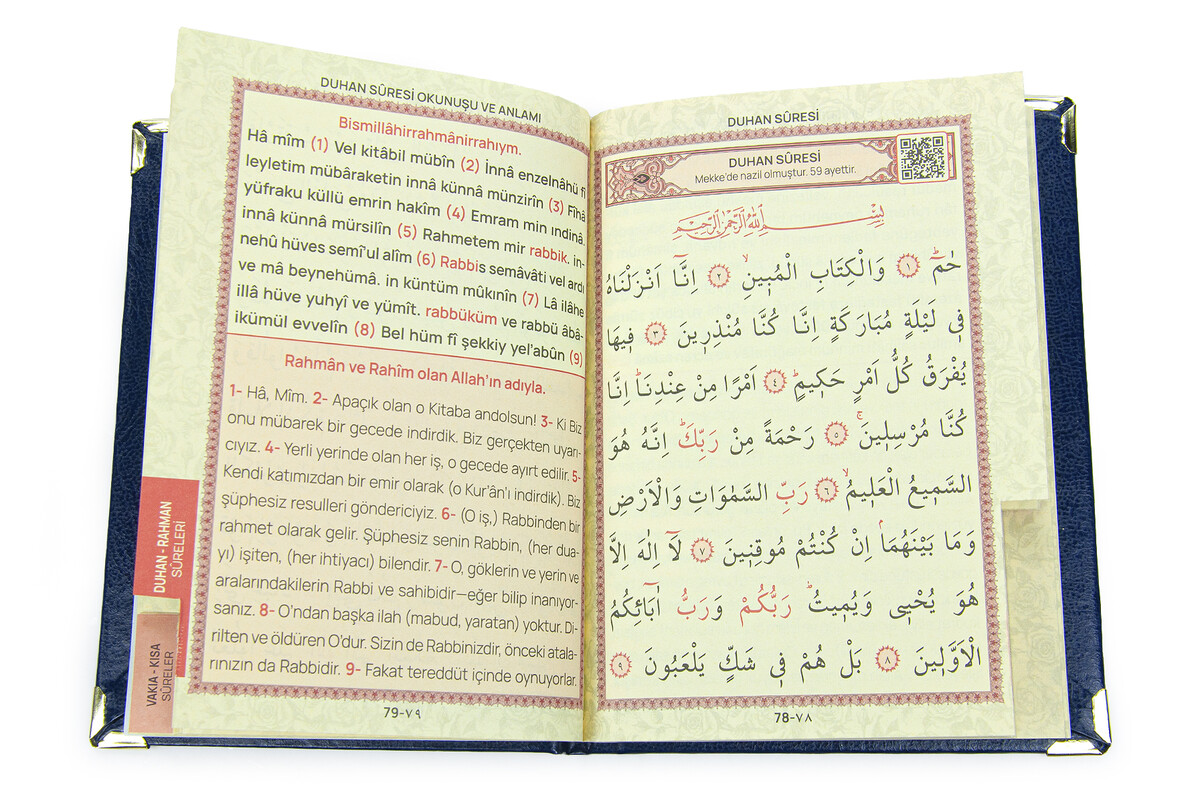 DUHAN SÛRESİ
DUHAN SÛRESİ
Mekke'de nazil olmuştur. 59 ayettir.
بِسْمِ اللّٰهِ الرَّحْمٰنِ الرَّحِيمِ
حٰمٓۜ ﴿١﴾ وَالْكِتَابِ الْمُب۪ينِۙ ﴿٢﴾ اِنَّٓا اَنْزَلْنَاهُ
ف۪ي لَيْلَةٍ مُبَارَكَةٍ اِنَّا كُنَّا مُنْذِر۪ينَ ﴿٣﴾ ف۪يهَا
يُفْرَقُ كُلُّ اَمْرٍ حَك۪يمٍۜ ﴿٤﴾ اَمْرًا مِنْ عِنْدِنَاۜ اِنَّا
كُنَّا مُرْسِل۪ينَۚ ﴿٥﴾ رَحْمَةً مِنْ رَبِّكَۜ اِنَّهُ هُوَ
السَّم۪يعُ الْعَل۪يمُۙ ﴿٦﴾ رَبِّ السَّمٰوَاتِ وَالْاَرْضِ
وَمَا بَيْنَهُمَاۢ اِنْ كُنْتُمْ مُوقِن۪ينَ ﴿٧﴾ لَٓا اِلٰهَ اِلَّا
هُوَ يُحْي۪ي وَيُم۪يتُۜ رَبُّكُمْ وَرَبُّ اٰبَٓائِكُمُ
الْاَوَّل۪ينَ ﴿٨﴾ بَلْ هُمْ ف۪ي شَكٍّ يَلْعَبُونَ ﴿٩﴾
78-٧٨
DUHAN SÛRESİ OKUNUŞU VE ANLAMI
Bismillâhirrahmânirrahıym.
Hâ mîm (1) Vel kitâbil mübîn (2) İnnâ enzelnâhü fî
leyletim mübâraketin innâ künnâ münzirîn (3) Fîhâ
yüfraku küllü emrin hakîm (4) Emram min ındinâ,
innâ künnâ mürsilîn (5) Rahmetem mir rabbik. in-
nehû hüves semî'ul alîm (6) Rabbis semâvâti vel ardı
ve mâ beynehümâ. in küntüm mûkınîn (7) Lâ ilâhe
illâ hüve yuhyî ve yümît. rabbüküm ve rabbü âbâ-
ikümül evvelîn (8) Bel hüm fî şekkiy yel'abûn (9)
Rahmân ve Rahîm olan Allah'ın adıyla.
1- Hâ, Mîm. 2- Apaçık olan o Kitaba andolsun! 3- Ki Biz
onu mübarek bir gecede indirdik. Biz gerçekten uyarı-
cıyız. 4- Yerli yerinde olan her iş, o gecede ayırt edilir. 5-
Kendi katımızdan bir emir olarak (o Kur'ân'ı indirdik). Biz
şüphesiz resulleri göndericiyiz. 6- (O iş,) Rabbinden bir
rahmet olarak gelir. Şüphesiz senin Rabbin, (her dua-
yı) işiten, (her ihtiyacı) bilendir. 7- O, göklerin ve yerin ve
aralarındakilerin Rabbi ve sahibidir—eğer bilip inanıyor-
sanız. 8- O'ndan başka ilah (mabud, yaratan) yoktur. Di-
rilten ve öldüren O'dur. Sizin de Rabbinizdir, önceki atala-
rınızın da Rabbidir. 9- Fakat tereddüt içinde oynuyorlar.
79-٧٩
DUHAN - RAHMAN
SÛRELERİ
VAKIA - KISA
SÛRELER